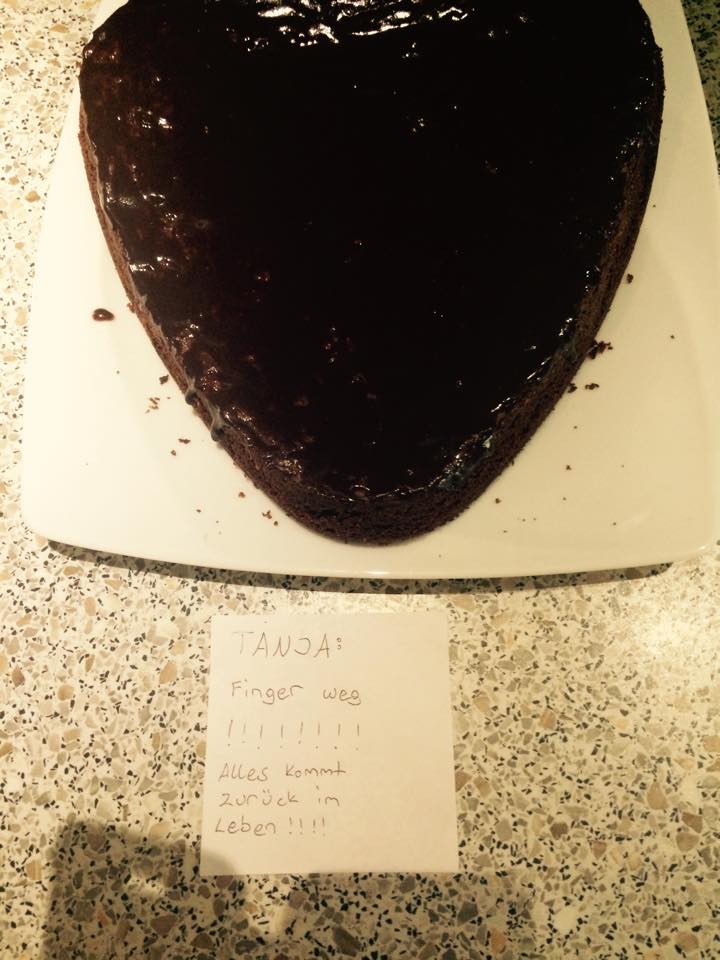 TANJA:
Finger weg
!!!!!!!!
Alles kommt
zurück im
Leben!!!!